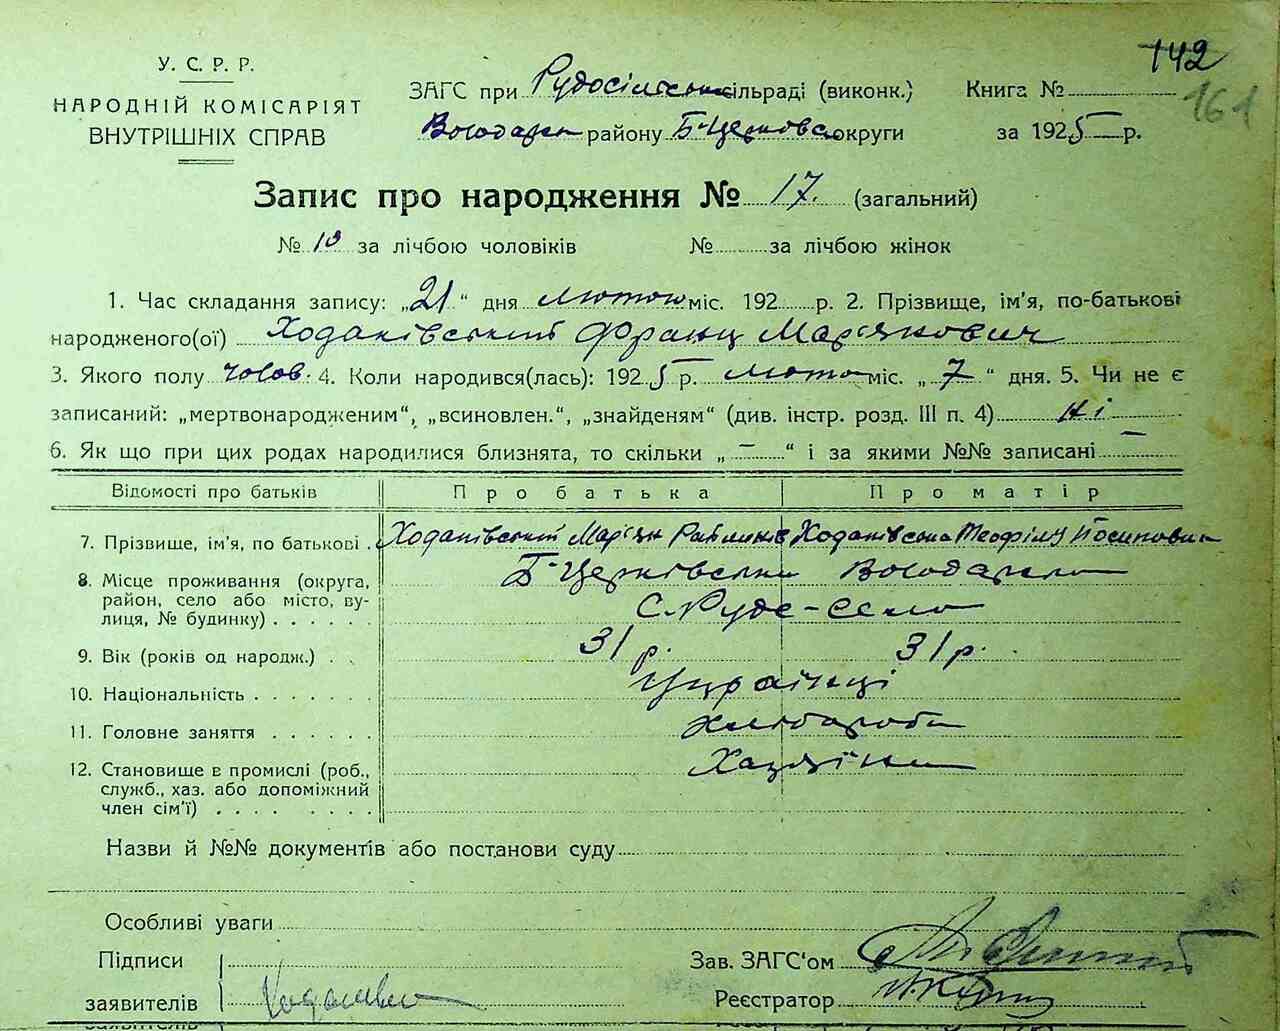 142
161
У. С. Р. Р.
НАРОДНІЙ КОМІСАРІЯТ
ВНУТРІШНІХ СПРАВ
ЗАГС при Рудосільськ сільраді (виконк.) Книга №
Володарськ району Б-Церковськ округи за 1925 р.
Запис про народження № 17. (загальний)
№ 10 за лічбою чоловіків № за лічбою жінок
1. Час складання запису: „21“ дня лютого міс. 192 р. 2. Прізвище, ім'я, по-батькові
народженого(ої) Ходаківський Франц Мар'янович
3. Якого полу чолов. 4. Коли народився(лась): 1925 р. лютого міс. „7“ дня. 5. Чи не є
записаний: „мертвонародженим“, „всиновлен.“, „знайденям“ (див. інстр. розд. III п. 4) Ні
6. Як що при цих родах народилися близнята, то скільки „ — “ і за якими №№ записані —
Відомості про батьків Про батька Про матір
7. Прізвище, ім'я, по батькові . Ходаківський Мар'ян Ходаківська Теофіля Йосиповна
8. Місце проживання (округа, Б-Церківська Володарськ
район, село або місто, ву- с. Руде-село
лиця, № будинку) . . . . . .
9. Вік (років од народж.) . . 31 р. 31 р.
10. Національність . . . . . . . Українці
11. Головне заняття . . . . . . Хлібороби
12. Становище в промислі (роб., Хазяїни
служб., хаз. або допоміжний
член сім'ї) . . . . . . .
Назви й №№ документів або постанови суду
Особливі уваги
Підписи Зав. ЗАГС'ом
заявителів Реєстратор